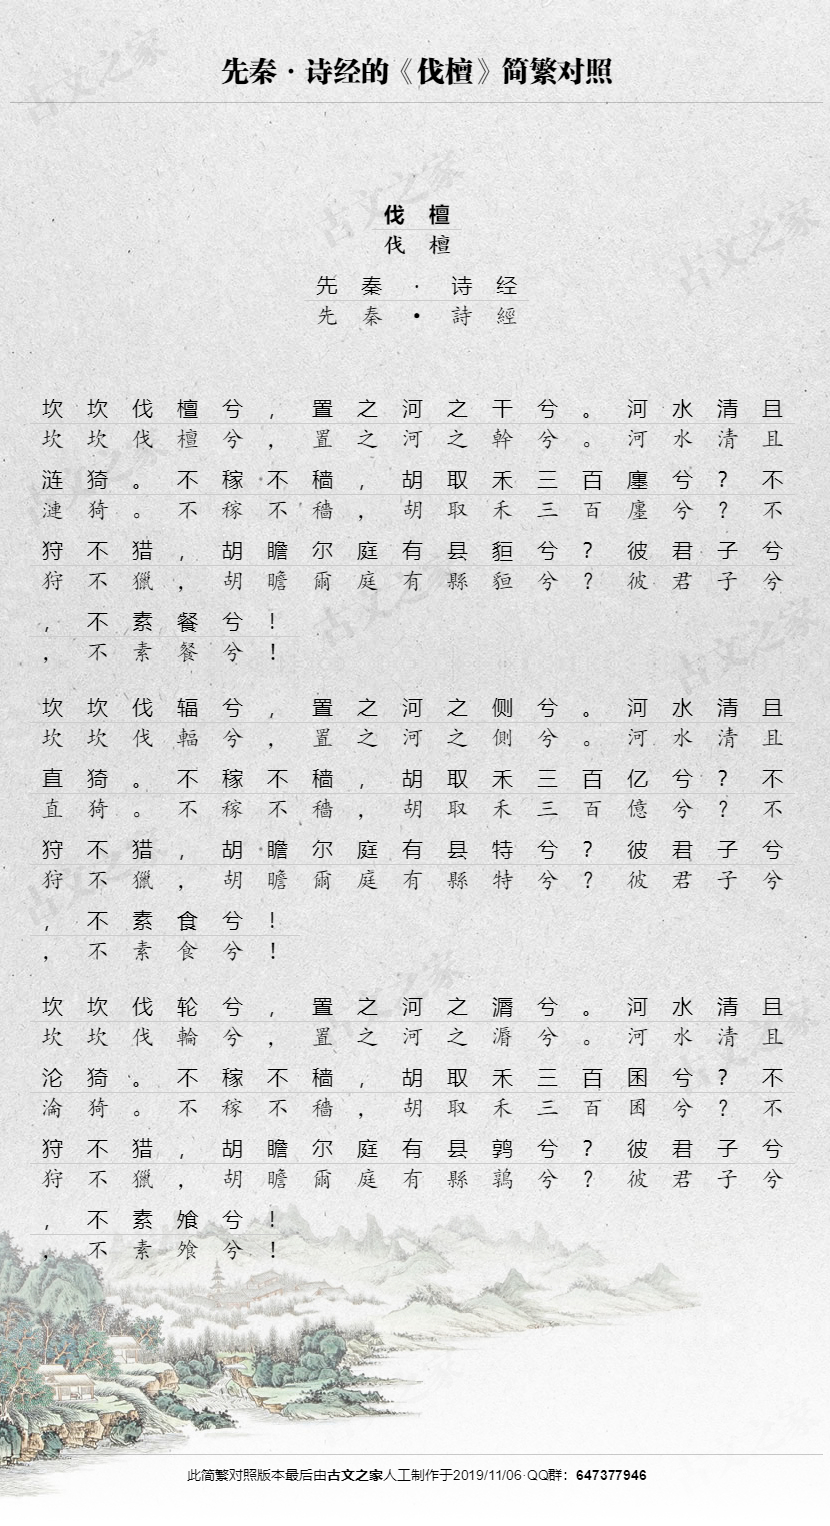 先秦·诗经的《伐檀》简繁对照
伐檀
伐檀
先秦·诗经
先秦•詩經
坎坎伐檀兮，置之河之干兮。河水清且
坎坎伐檀兮，置之河之幹兮。河水清且
涟猗。不稼不穑，胡取禾三百廛兮？不
漣猗。不稼不穡，胡取禾三百廛兮？不
狩不猎，胡瞻尔庭有县貆兮？彼君子兮
狩不獵，胡瞻爾庭有縣貆兮？彼君子兮
，不素餐兮！
，不素餐兮！
坎坎伐辐兮，置之河之侧兮。河水清且
坎坎伐輻兮，置之河之側兮。河水清且
直猗。不稼不穑，胡取禾三百亿兮？不
直猗。不稼不穡，胡取禾三百億兮？不
狩不猎，胡瞻尔庭有县特兮？彼君子兮
狩不獵，胡瞻爾庭有縣特兮？彼君子兮
，不素食兮！
，不素食兮！
坎坎伐轮兮，置之河之漘兮。河水清且
坎坎伐輪兮，置之河之漘兮。河水清且
沦猗。不稼不穑，胡取禾三百囷兮？不
淪猗。不稼不穡，胡取禾三百囷兮？不
狩不猎，胡瞻尔庭有县鹑兮？彼君子兮
狩不獵，胡瞻爾庭有縣鶉兮？彼君子兮
，不素飧兮！
，不素飧兮！
此简繁对照版本最后由古文之家人工制作于2019/11/06·QQ群：647377946